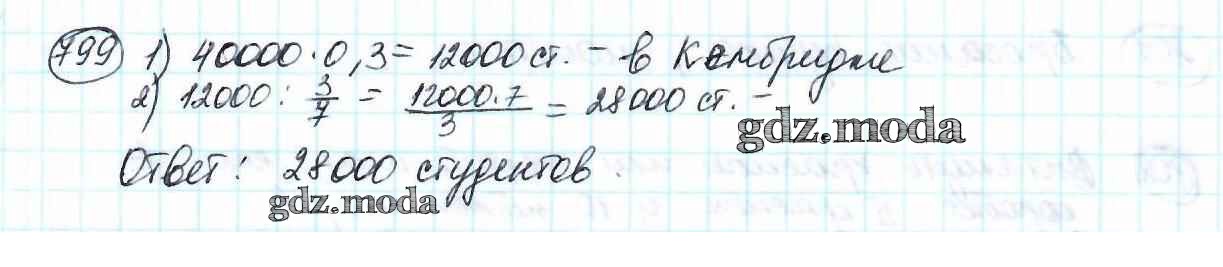 799 1) 40000·0,3=12000 ст. - в Кембридже
2) 12000 : 3/7 = 12000·7/3 = 28000 ст. -
gdz.moda
Ответ: 28000 студентов.
gdz.moda